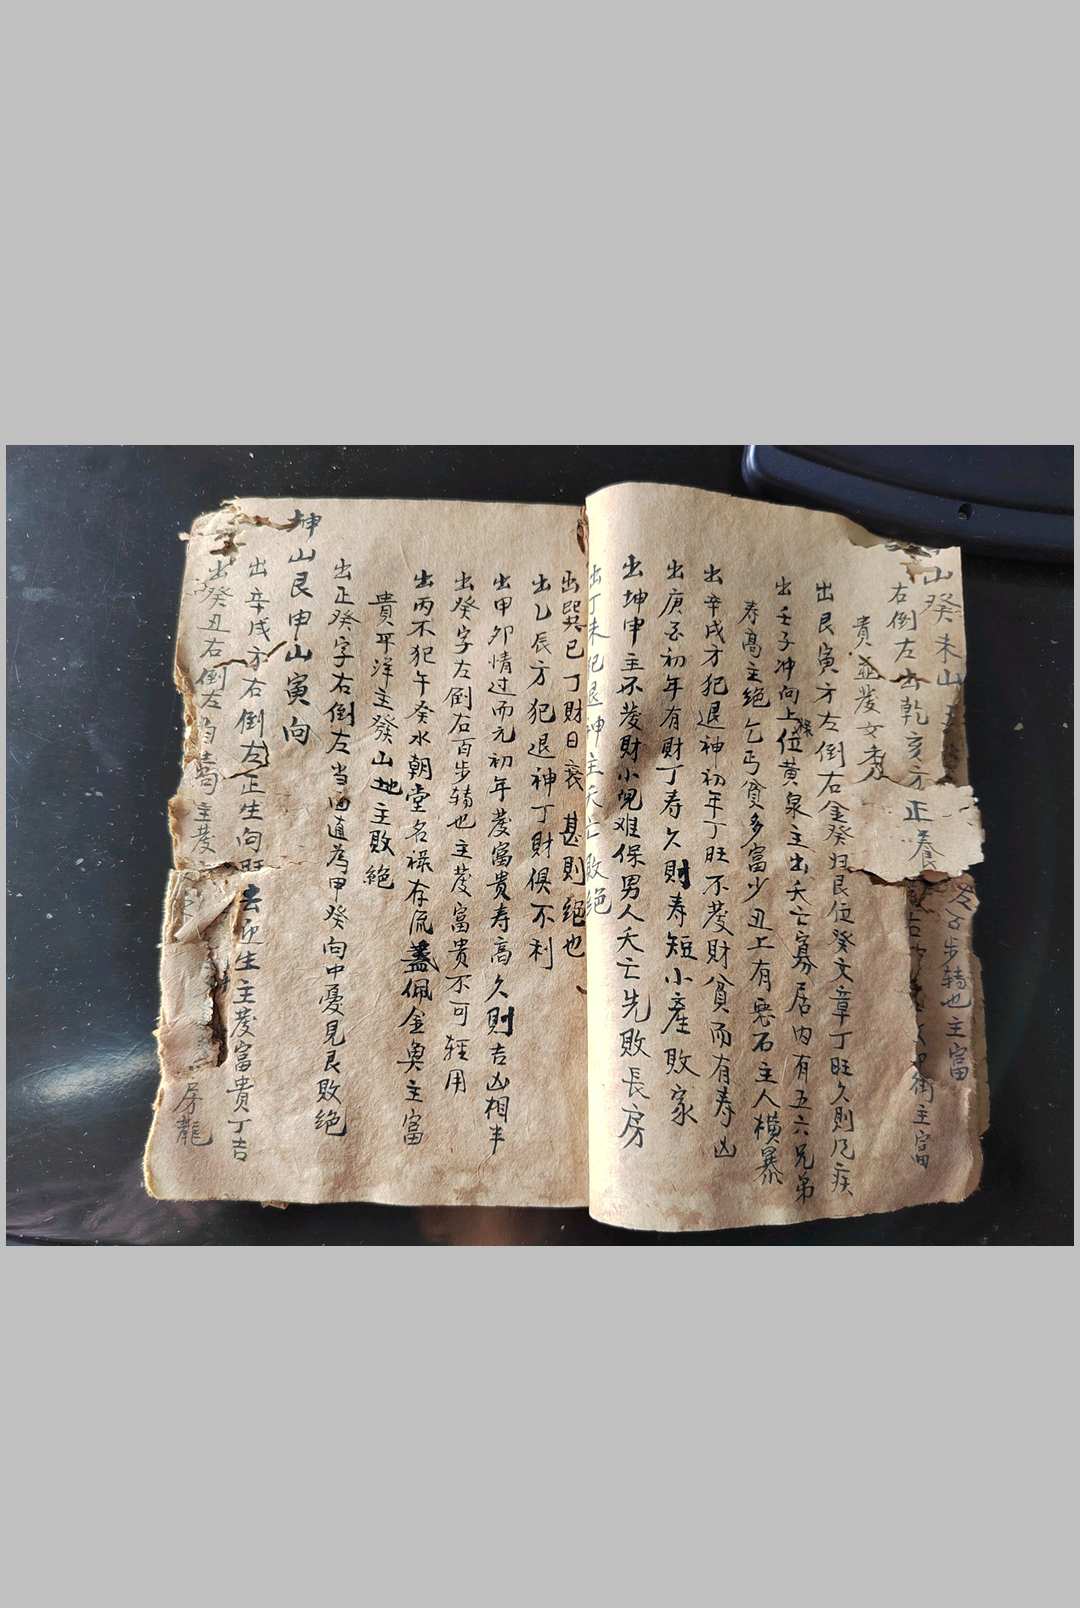 山癸未山丑
步轉也主富
右倒左出乾亥方正養
主富
貴並发女秀
出艮寅方左倒右金癸归艮位癸文章丁旺久則凡疾
出壬子冲向上位黄泉主出夭亡寡居内有五六兄弟
寿高主絶乞丐貧多富少丑上有恶石主人橫暴
出辛戌方犯退神初年丁旺不发財貧而有寿凶
出庚酉初年有財丁寿久則寿短小產败家
出坤申主不发財小児难保男人夭亡先敗長房
出丁未犯退神主夭亡敗绝
出巽巳丁財日衰甚則絕也
出乙辰方犯退神丁財俱不利
出甲卯情过而元初年发富貴寿高久則吉凶相半
出癸字左倒右百步轉也主发富贵不可軽用
出丙不犯午癸水朝堂名禄存流盡佩金魚主富
貴平洋主發山地主敗絕
出正癸字右倒左当面直為甲癸向中憂見艮敗绝
坤山艮申山寅向
出辛戌方右倒左正生向旺去迎生主发富貴丁吉
出癸丑右倒左主发
房龍